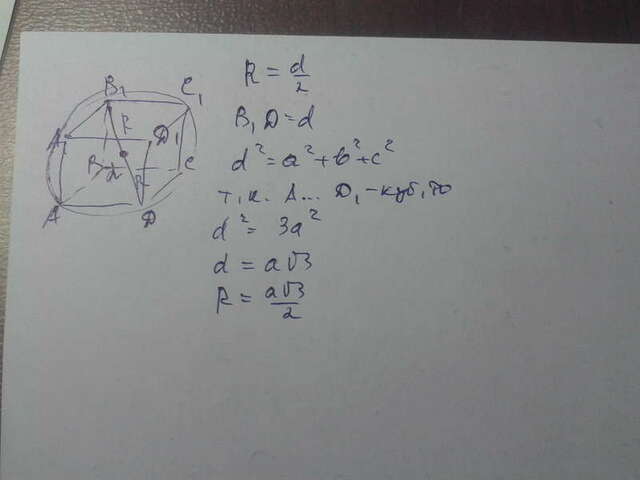 B₁ C₁
R
A₁ D₁
B d R C
A D
R = d/2
B₁D = d
d² = a² + b² + c²
т.к. A... D₁ - куб, то
d² = 3a²
d = a√3
R = a√3/2